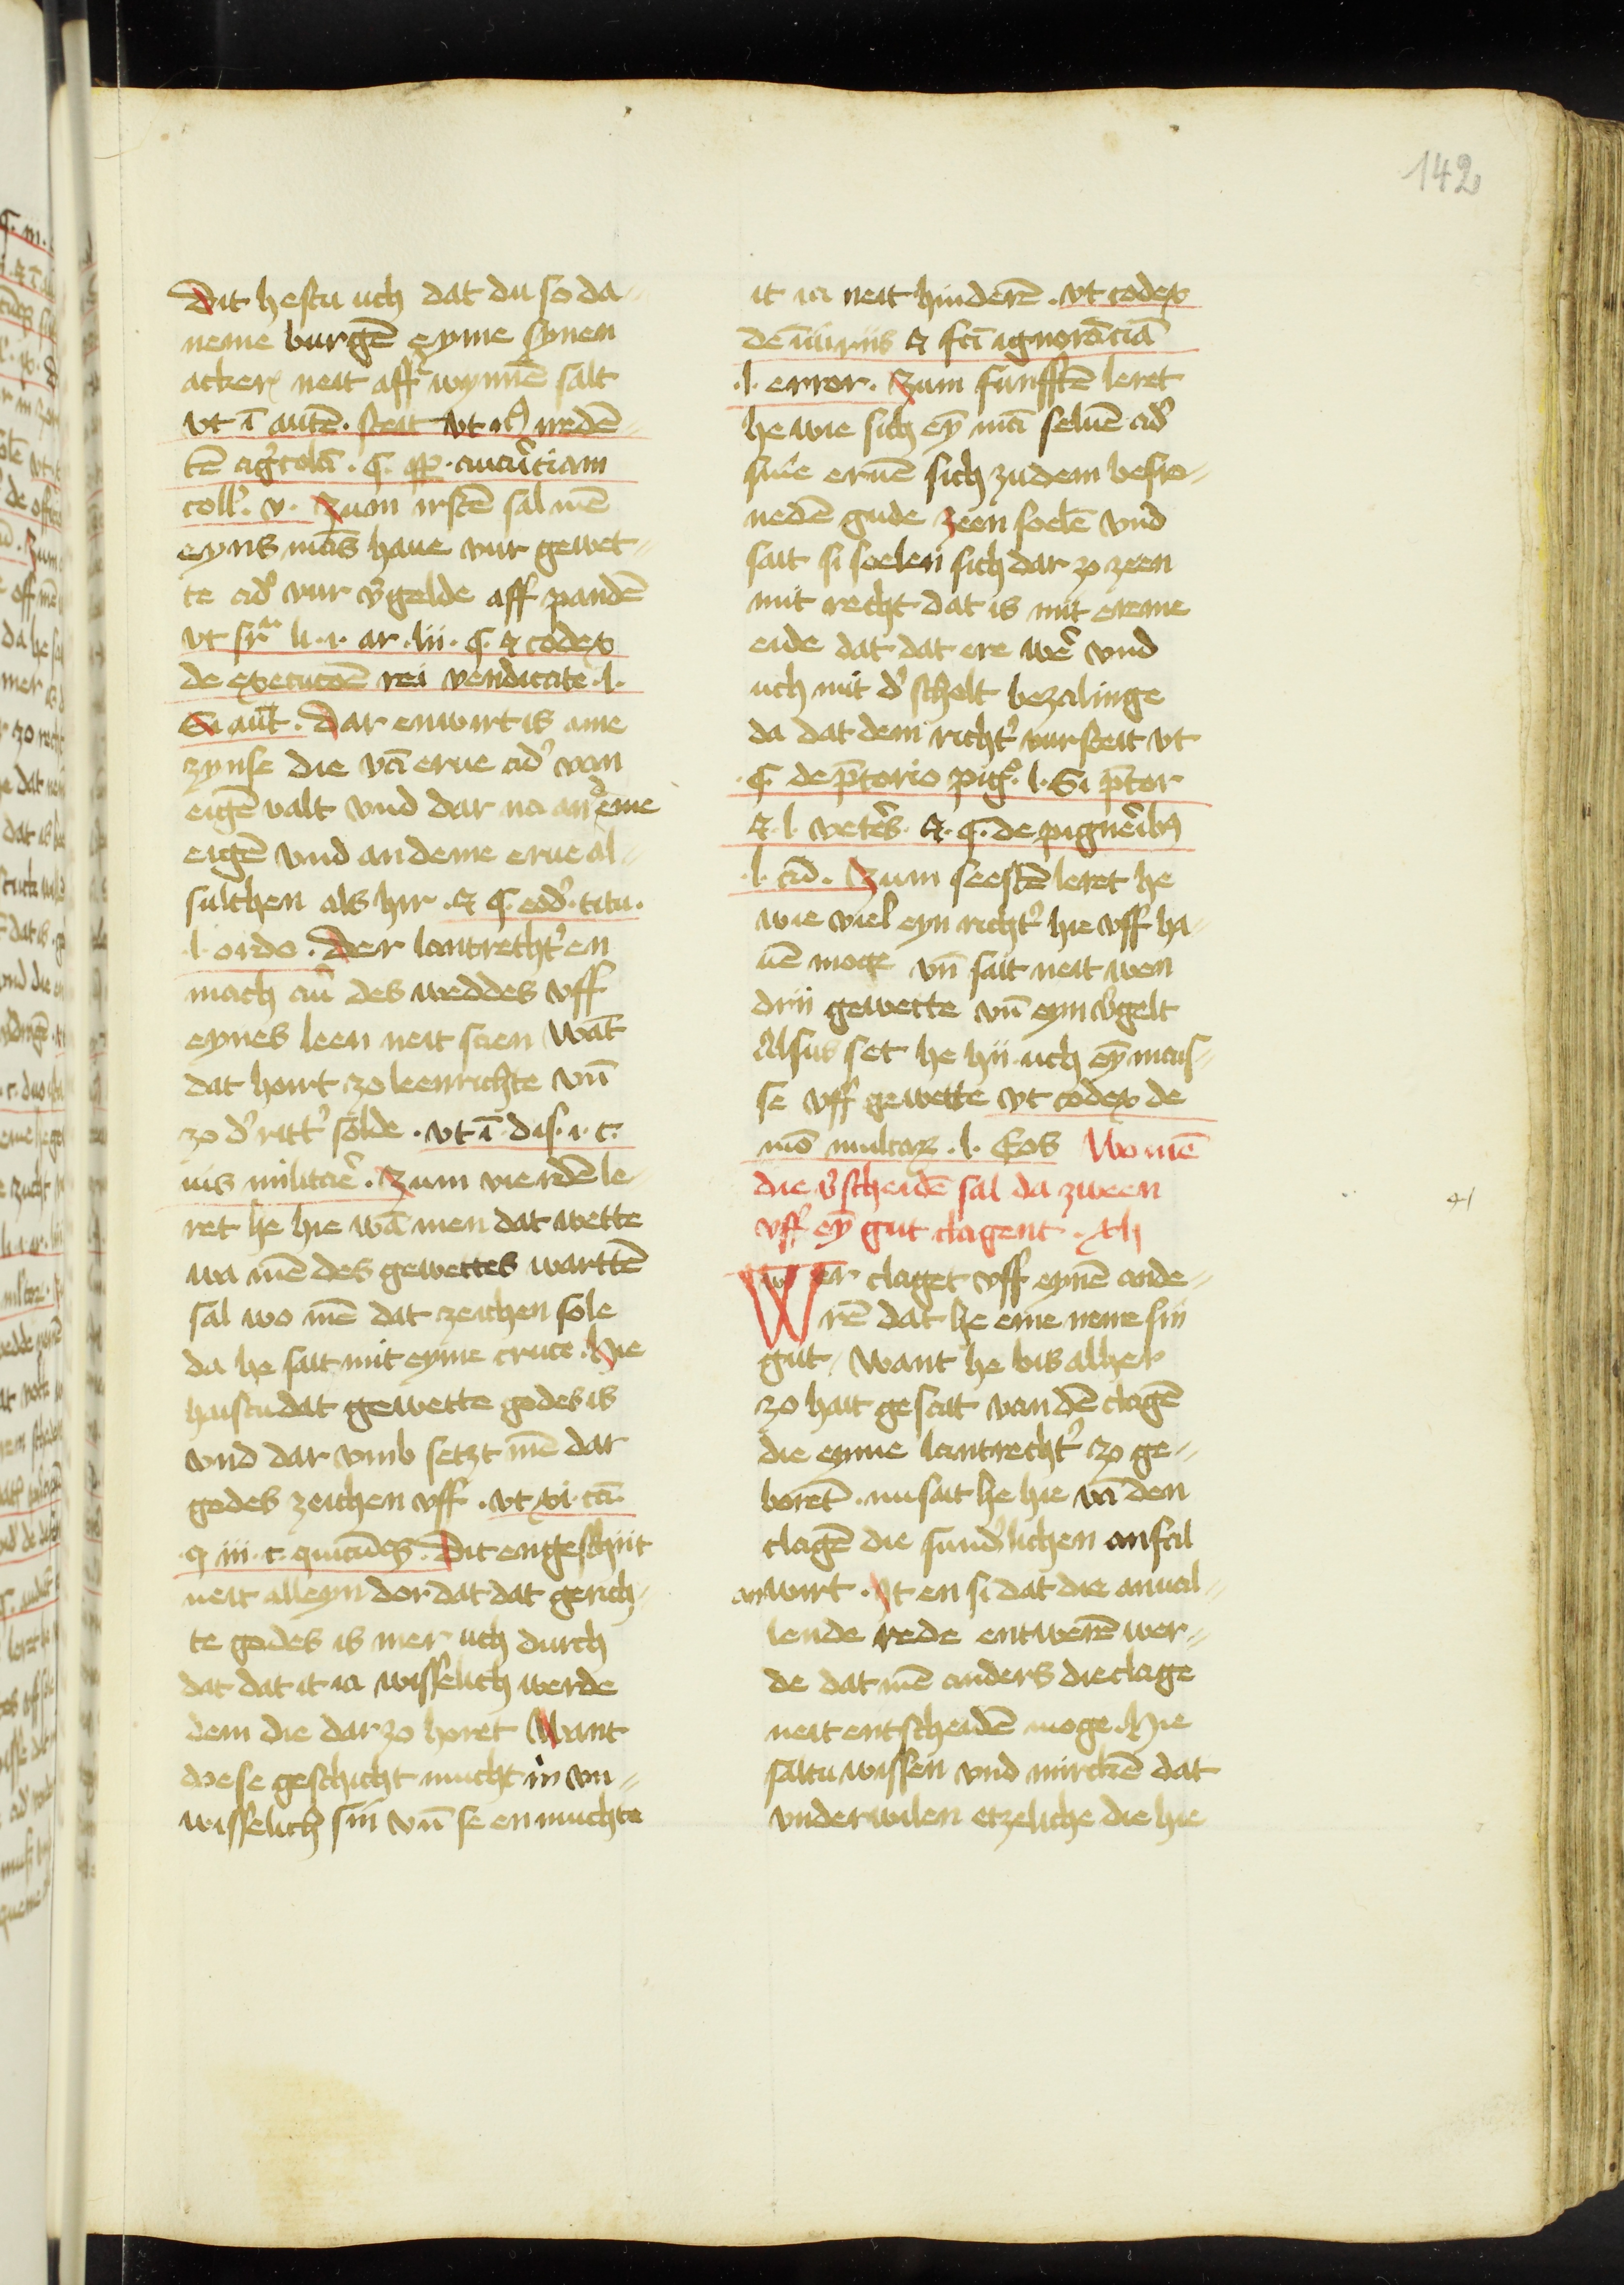 142
Dit hestu uch dat du so da-
neme burgē eyme synen
acker neit aff wynnē salt
vt ī autē. steit vt nedē-
tē ag'colā. C. cuiūtiam
coll'. v. Zum irstē sal mē
eyns mās haue vur gewet-
te ad' vur v'gelde aff pandē
vt sr̄ li. i. ar. liii. C. & codex
de execucōē rei vendicate. l.
Si aut̄. Dar enwirt is ane
zynse die vā erue ad' van
eigē valt vnd dar na an deme
eigē vnd an deme erue al-
sulchen als hir. & C. eod'. titu.
l ordo. Der lantrecht' en
mach an̄ des weddes vff
eynes leen neit scien Wāt
dat hourt zo leenrichte vn̄
zo d' ritt' solde. vt ī dis. i. c.
ius militar'. Zum vierdē le-
ret he hie wā men dat wette
wa mē des gewettes wartē
sal wo mē dat zeichen sole
da he sait mit eyme cruce. Hie
haistu dat gewette godes is
vnd dar vmb setzt mē dar
godes zeichen vff. vt xi. cā.
q iii. c. quicūq3. Dit engeschiit
neit alleyn dor dat dat gerich-
te godes is mer uch durch
dat dat it ia wisselich werde
dem die dar zo horet Want
diese geschicht mucht in vn-
wisselich sin vn̄ se en muchte
it ia neit hinderē. vt codex
de iniuriis & fcī ignorācia
.l. error. Zum funfftē leret
he wie sich eȳ mā seluē ad'
sine eruē sich zu dem befro-
nedē gude zeen soelē vnd
sait si soelen sich dar zo zeen
mit recht dat is mit ereme
eide dat dat ere wer' vnd
uch mit d' scholt bezalinge
da dat dem richt' vur steit vt
C. de p̄torio pig'. l. Si p̄tor
&. l. vetēs. &. C. de pignerib3
.l. cū. Zum seestē leret he
wie viel eyn richt' hie vff ha-
uē moge vn̄ sait neit wen
drii gewette vn̄ eyn v'gelt
Alsus set he hii uch eȳ mais-
se vff gewette vt codex de
mō multar. l. Eos Wo mē
die v'scheidē sal da zween
vff eȳ gut clagent. xli
Wer claget vff eynē ande-
rē dat he eme neme sin
gut, Want he bis alher
zo hait gesait van dē clagē
die eyme lantrecht' zo ge-
boret̄. nu sait he hie vā den
clagē die sund'lichen anfal
anwirt. It en si dat die anual-
lende rede entwerē wer-
de dat mē anders die clage
neit entscheidē moge. Hie
saltu wissen vnd mirckē dat
vnderwilen etzeliche die hie